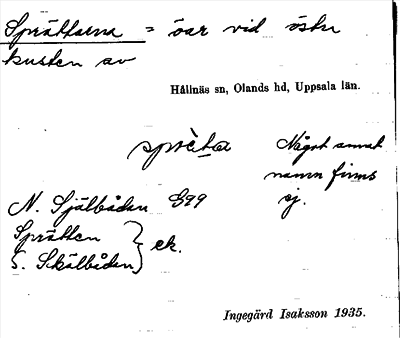 Sprättarna = öar vid östra
kusten av
Hållnäs sn, Olands hd, Uppsala län.
sprèta
Något annat
namn finns
ej.
N. Själbådan G99
Sprätten
S. Skälbådan } ek.
Ingegärd Isaksson 1935.